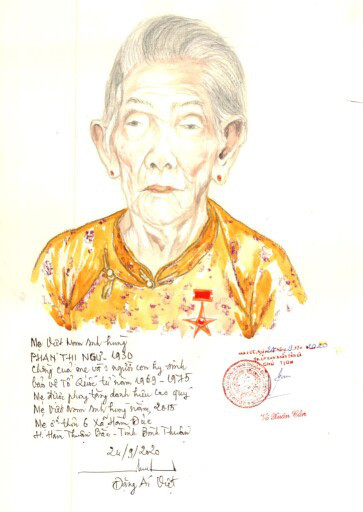 Mẹ Việt Nam anh hùng
PHAN THỊ NGƯ - 1930
Chồng của mẹ và 2 người con hy sinh
bảo vệ Tổ Quốc từ năm 1969 - 1975
Mẹ được phong tặng danh hiệu cao quý
Mẹ Việt Nam anh hùng năm, 2015
Mẹ ở thôn 6 Xã Hàm Đức
H. Hàm Thuận Bắc - Tỉnh Bình Thuận
24/9/2020
Đặng Ái Việt